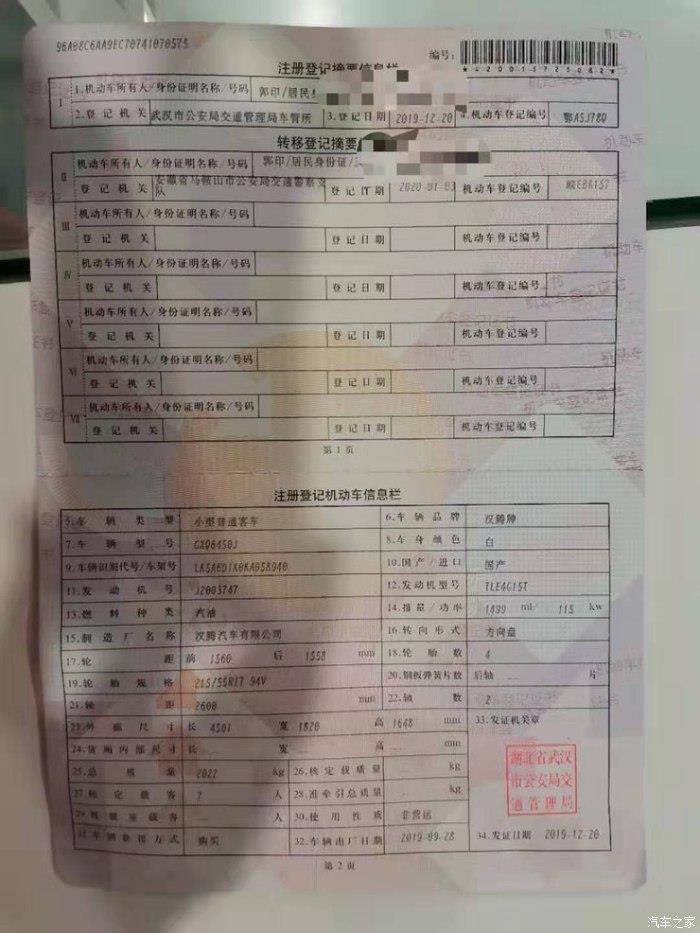 96A08C6AA9EC7074107057S
编号:
*420013725082*
注册登记摘要信息栏
I
1.机动车所有人/身份证明名称/号码 郭印/居民
2.登记机关 武汉市公安局交通管理局车管所 3.登记日期 2019-12-20 4.机动车登记编号 鄂ASJ78Q
转移登记摘要
II
机动车所有人/身份证明名称/号码 郭印/居民身份证/
登记机关 安徽省马鞍山市公安局交通警察支队 登记日期 2020-01-03 机动车登记编号 皖E8K157
III
机动车所有人/身份证明名称/号码
登记机关 登记日期 机动车登记编号
IV
机动车所有人/身份证明名称/号码
登记机关 登记日期 机动车登记编号
V
机动车所有人/身份证明名称/号码
登记机关 登记日期 机动车登记编号
VI
机动车所有人/身份证明名称/号码
登记机关 登记日期 机动车登记编号
VII
机动车所有人/身份证明名称/号码
登记机关 登记日期 机动车登记编号
第1页
注册登记机动车信息栏
5.车辆类型 小型普通客车 6.车辆品牌 汉腾牌
7.车辆型号 8.车身颜色 白
9.车辆识别代号/车架号 10.国产/进口 国产
11.发动机号 J2003747 12.发动机型号 TLE4G15T
13.燃料种类 汽油 14.排量/功率 1499 ml/ 115 kw
15.制造厂名称 汉腾汽车有限公司 16.转向形式 方向盘
17.轮距 前 1560 后 1558 mm 18.轮胎数 4
19.轮胎规格 215/55R17 94V 20.钢板弹簧片数 后轴 片
21.轴距 2600 mm 22.轴数 2
23.外廓尺寸 长 4501 宽 1820 高 1648 mm 33.发证机关章
24.货厢内部尺寸 长 宽 高 mm
25.总质量 2022 kg 26.核定载质量 kg
27.核定载客 7 人 28.准牵引总质量 kg
29.驾驶室载客 人 30.使用性质 非营运
31.车辆获得方式 购买 32.车辆出厂日期 2019-09-28 34.发证日期 2019-12-20
湖北省武汉
市公安局交
通管理局
第2页
汽车之家